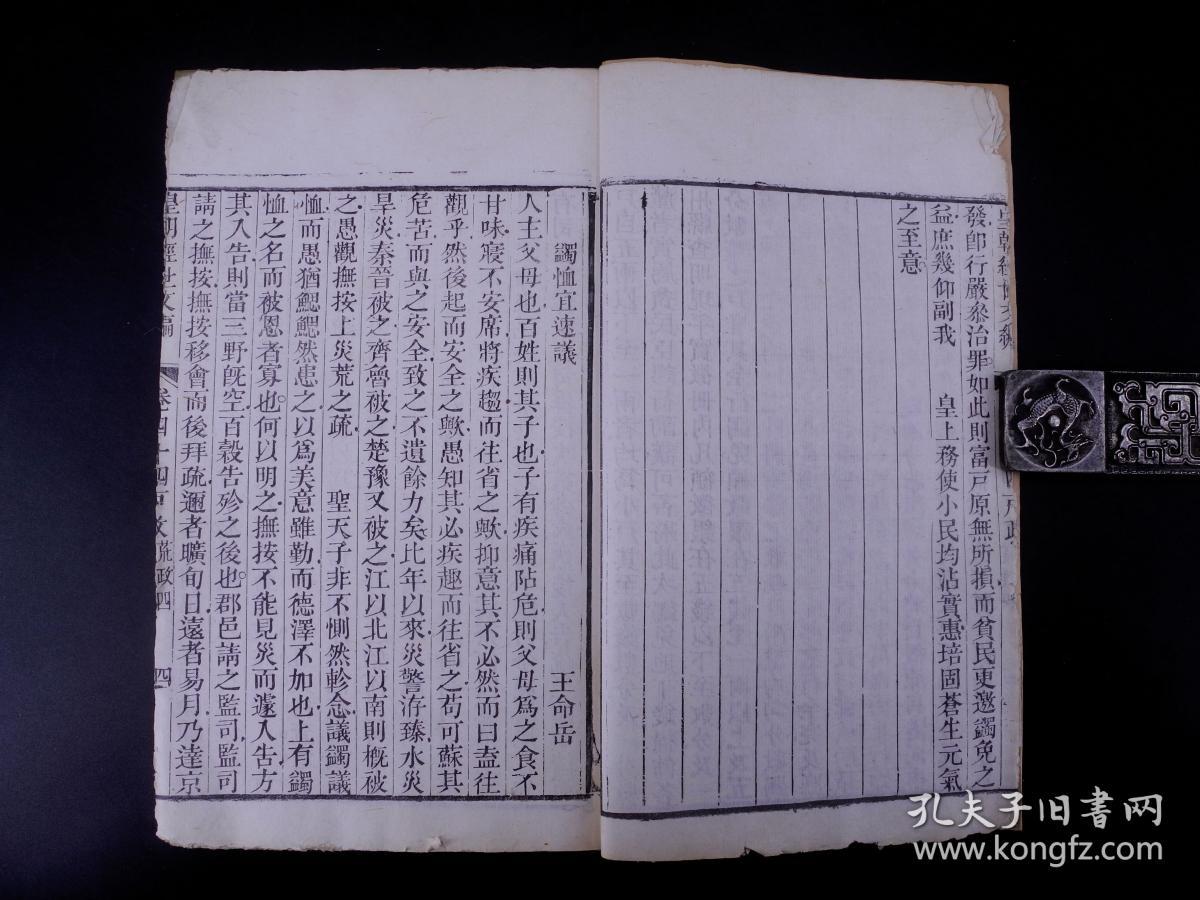 發即行嚴叅治罪如此則富戸原無所損而貧民更邀蠲免之
益庶幾仰副我　皇上務使小民均沾實惠培固蒼生元氣
之至意
蠲恤宜速議　王命岳
人主父母也百姓則其子也子有疾痛阽危則父母爲之食不
甘味寢不安席將疾趨而往省之歟抑意其不必然而曰盍往
觀乎然後起而安全之歟愚知其必疾趣而往省之苟可蘇其
危苦而與之安全致之不遺餘力矣比年以來災警洊臻水災
旱災秦晉被之齊魯被之楚豫又被之江以北江以南則概被
之愚觀撫按上災荒之疏　聖天子非不惻然軫念議蠲議
恤而愚猶鰓鰓然患之以爲美意雖勤而德澤不加也上有蠲
恤之名而被恩者寡也何以明之撫按不能見災而遽入告方
其入告則當三野旣空百穀告殄之後也郡邑請之監司監司
請之撫按撫按移會而後拜疏邇者曠旬日遠者易月乃達京
皇朝經世文編　卷四十四戸政荒政四　四
孔夫子旧书网
www.kongfz.com